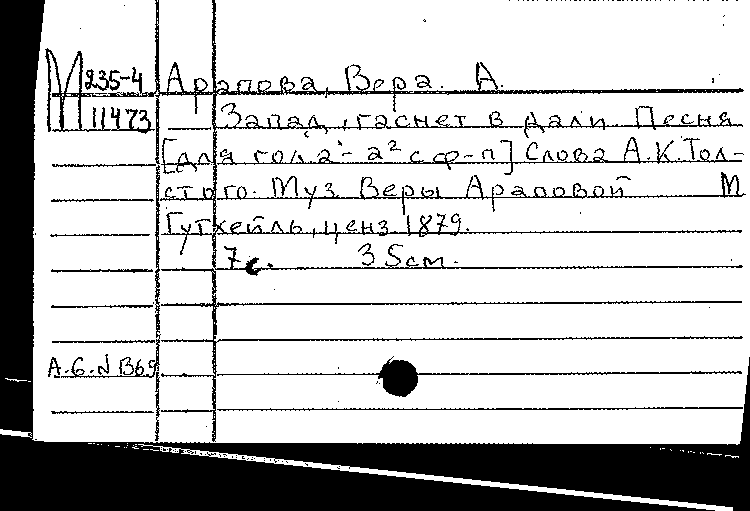 М 235-4
11473
Арапова, Вера. А.
Запад, гаснет в дали Песня
[для гол. а'- а² с ф-п] Слова А.К. Тол-
стого. Муз Веры Араповой М
Гутхейль, ценз 1879.
7с. 35см.
А.6.N 1369